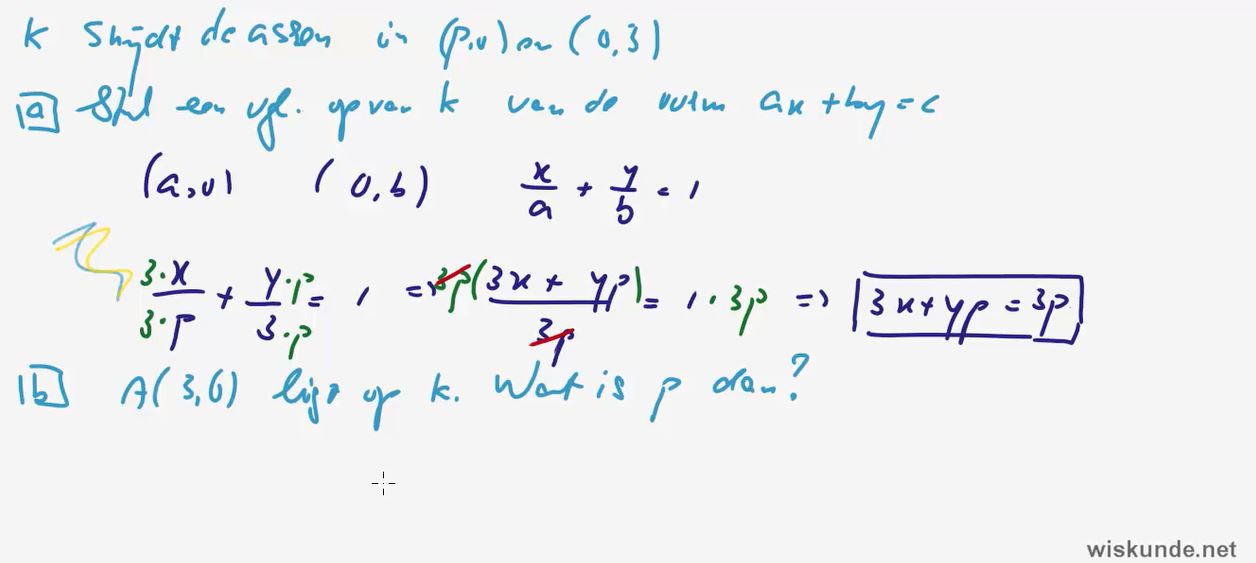 k snijdt de assen in (p,0) en (0,3)
a Stel een vgl. op van k van de vorm ax + by = c
(a,0) (0,b) x/a + y/b = 1
3·x/3·p + y·p/3·p = 1 => 3p(3x + yp)/3p = 1·3p => 3x + yp = 3p
b A(3,6) ligt op k. Wat is p dan?
wiskunde.net